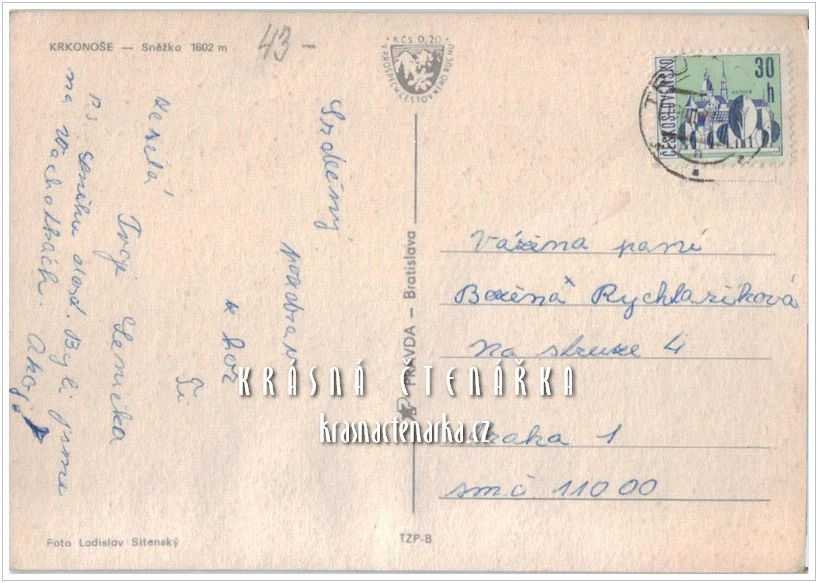 KRKONOŠE — Sněžka 1602 m
43-
KČS 0,20
V PROSPĚCH CESTOVNÍHO RUCHU
ČESKOSLOVENSKO
30 h
Srdečný
pozdrav
z hor
Ti
Tvoje Lenička
P.S. Sněhu dost. Byli jsme
na Václavkách. Ahoj
PRAVDA — Bratislava
Vážená paní
Božena Rychlaříková
Na struze 4
Praha 1
SMČ 110 00
KRÁSNÁ ČTENÁŘKA
krasnactenarka.cz
Foto Ladislav Sitenský
TZP-B